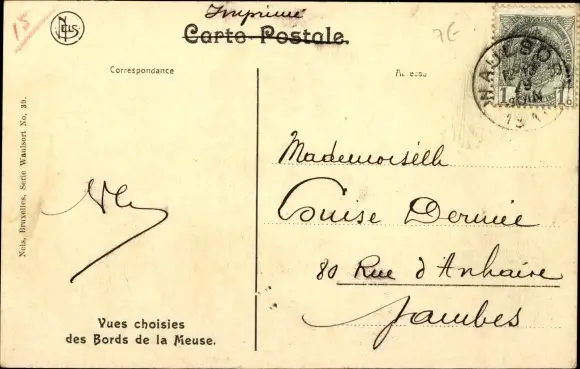 15
NELS
Imprimé
Carte Postale.
7€
Correspondance
POSTES
1 c
WAULSORT
JUIN
Nels, Bruxelles, Serie Waulsort No. 39.
Mademoiselle
Louise Dermiée
80 Rue d'Anhaive
Jambes
Vues choisies
des Bords de la Meuse.